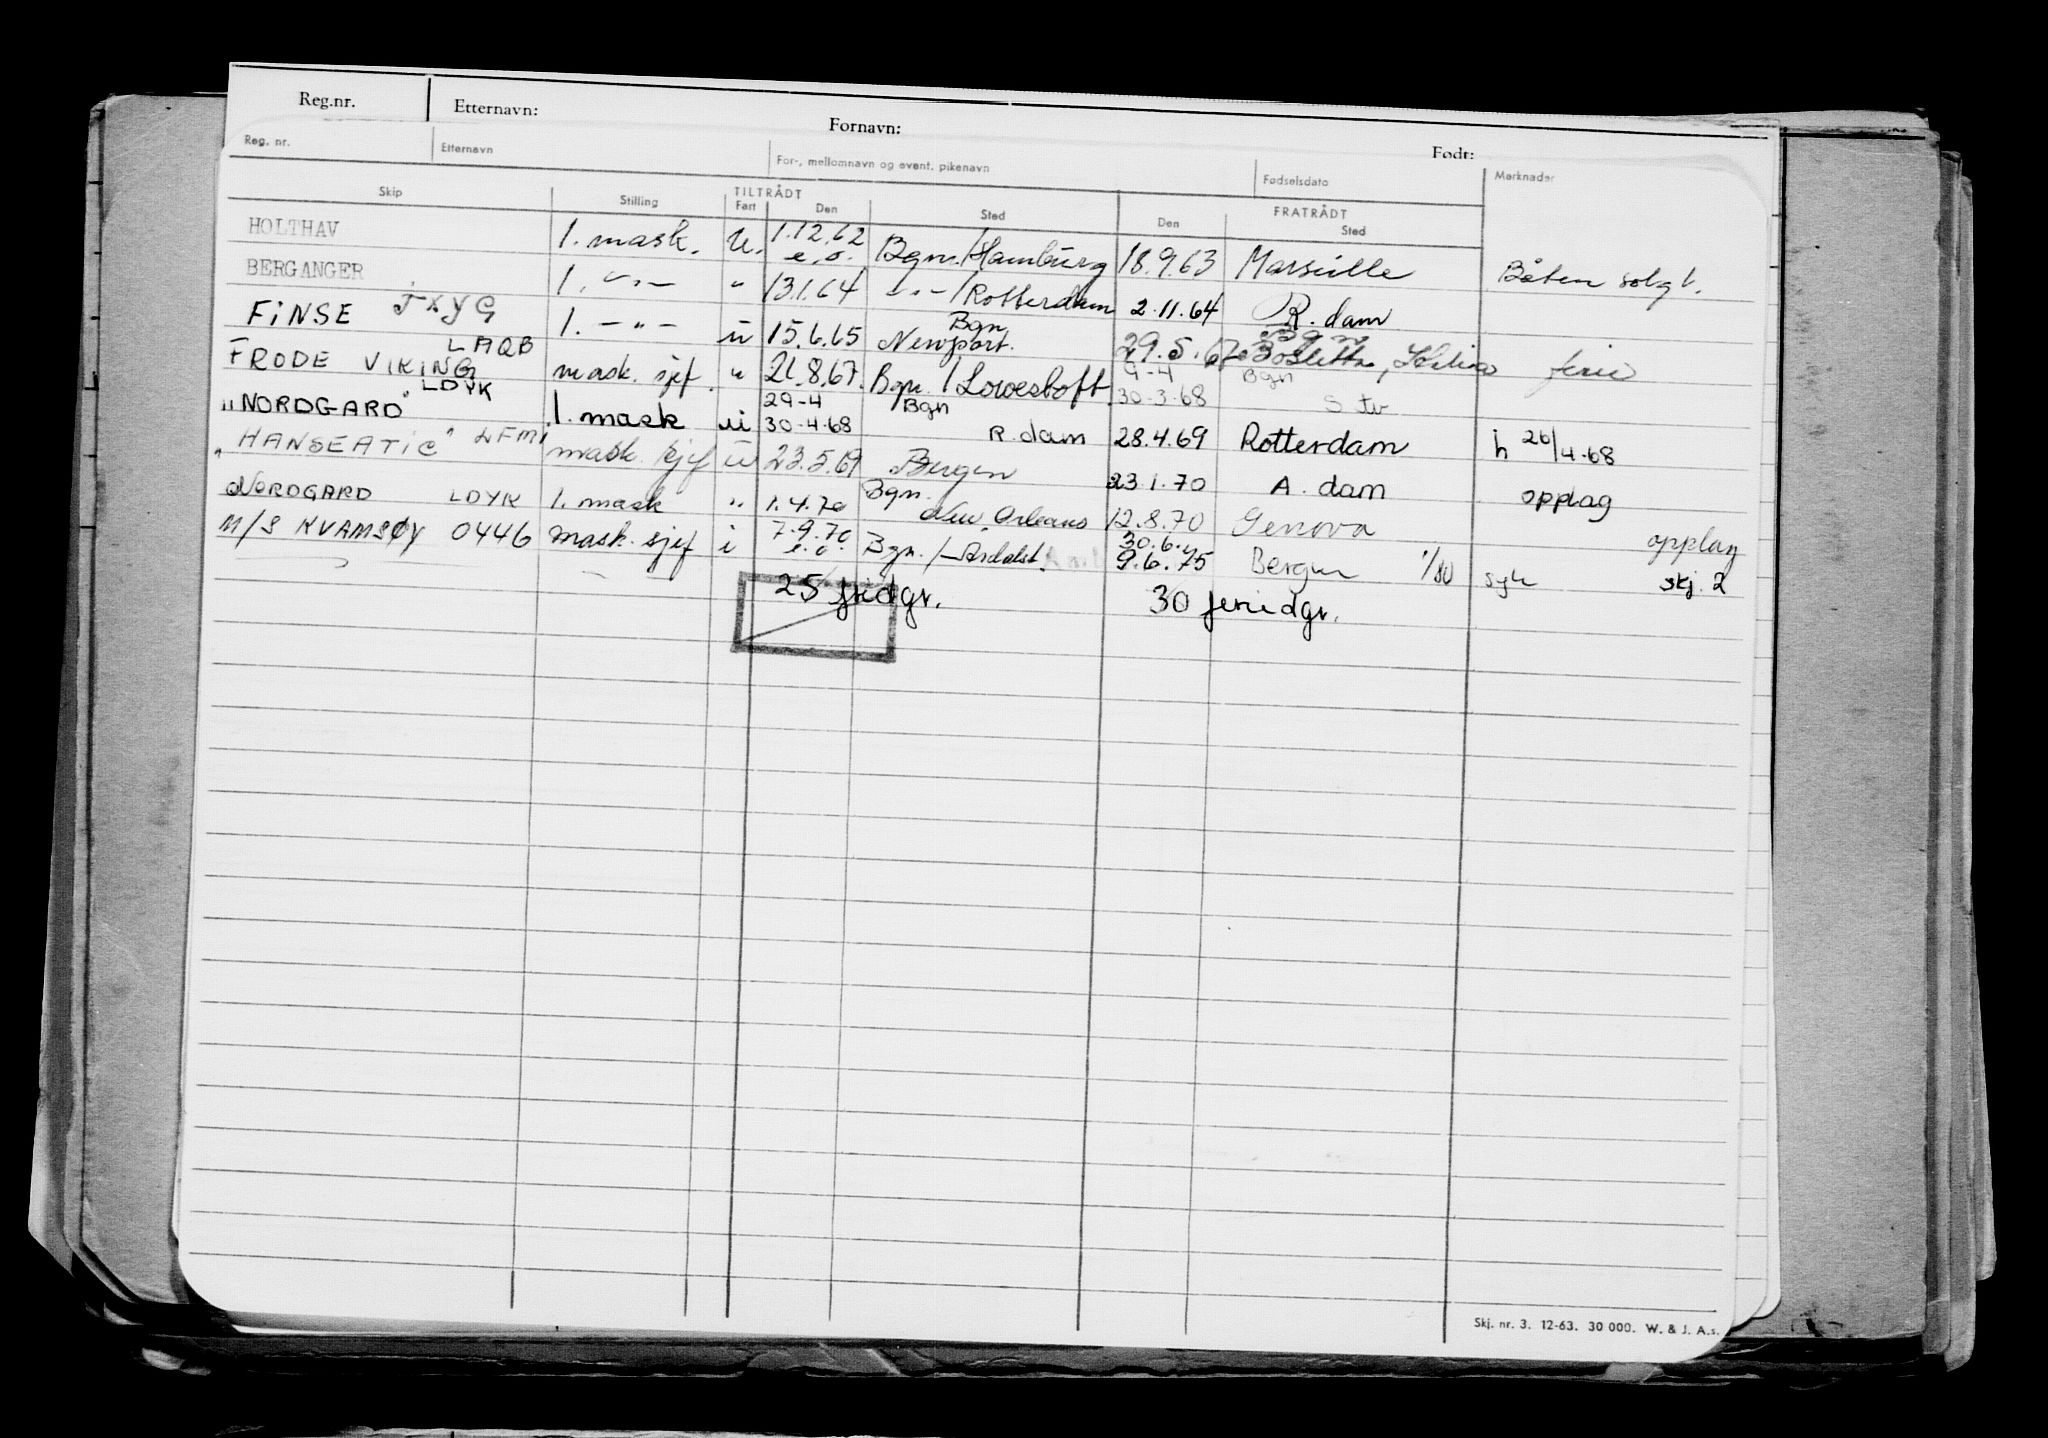 Reg.nr. Etternavn: Fornavn: Født:
Reg. nr. Etternavn For-, mellomnavn og event. pikenavn Fødselsdato Merknader
Skip Stilling TILTRÅDT FRATRÅDT
Fart Den Sted Den Sted
HOLTHAV 1. mask. u. 1.12.62 e.o. Bgn./Hamburg 18.9.63 Marseille Båten solgt.
BERGANGER 1. -"- " 13.1.64 -"-/Rotterdam 2.11.64 R.dam
FINSE JXYG 1. -"- u 15.6.65 Bgn Newport. 29.5.67 Bgn ferie
FRODE VIKING LAQB mask. sjef. " 21.8.67. Bgn./Lowestoft. 9-4 30-3-68 Bgn
"NORDGARD" LDYK 1. mask u 29-4 30-4-68 Bgn R.dam 28.4.69 Rotterdam h 26/4-68
"HANSEATIC" mask. sjef u 23.5.69 Bergen 23.1.70 A.dam opplag
NORDGARD LDYK 1. mask " 1.4.70 Bgn. New Orleans 12.8.70 Genova opplag
M/S KVAMSØY 0446 mask. sjef i 7.9.70 e.o. Bgn./Årdalst. 30.6. 9.6.75 Bergen 1/80 syk skj. 2
25 fridgr. 30 feriedgr.
Skj. nr. 3. 12-63. 30 000. W. & J. A.s.